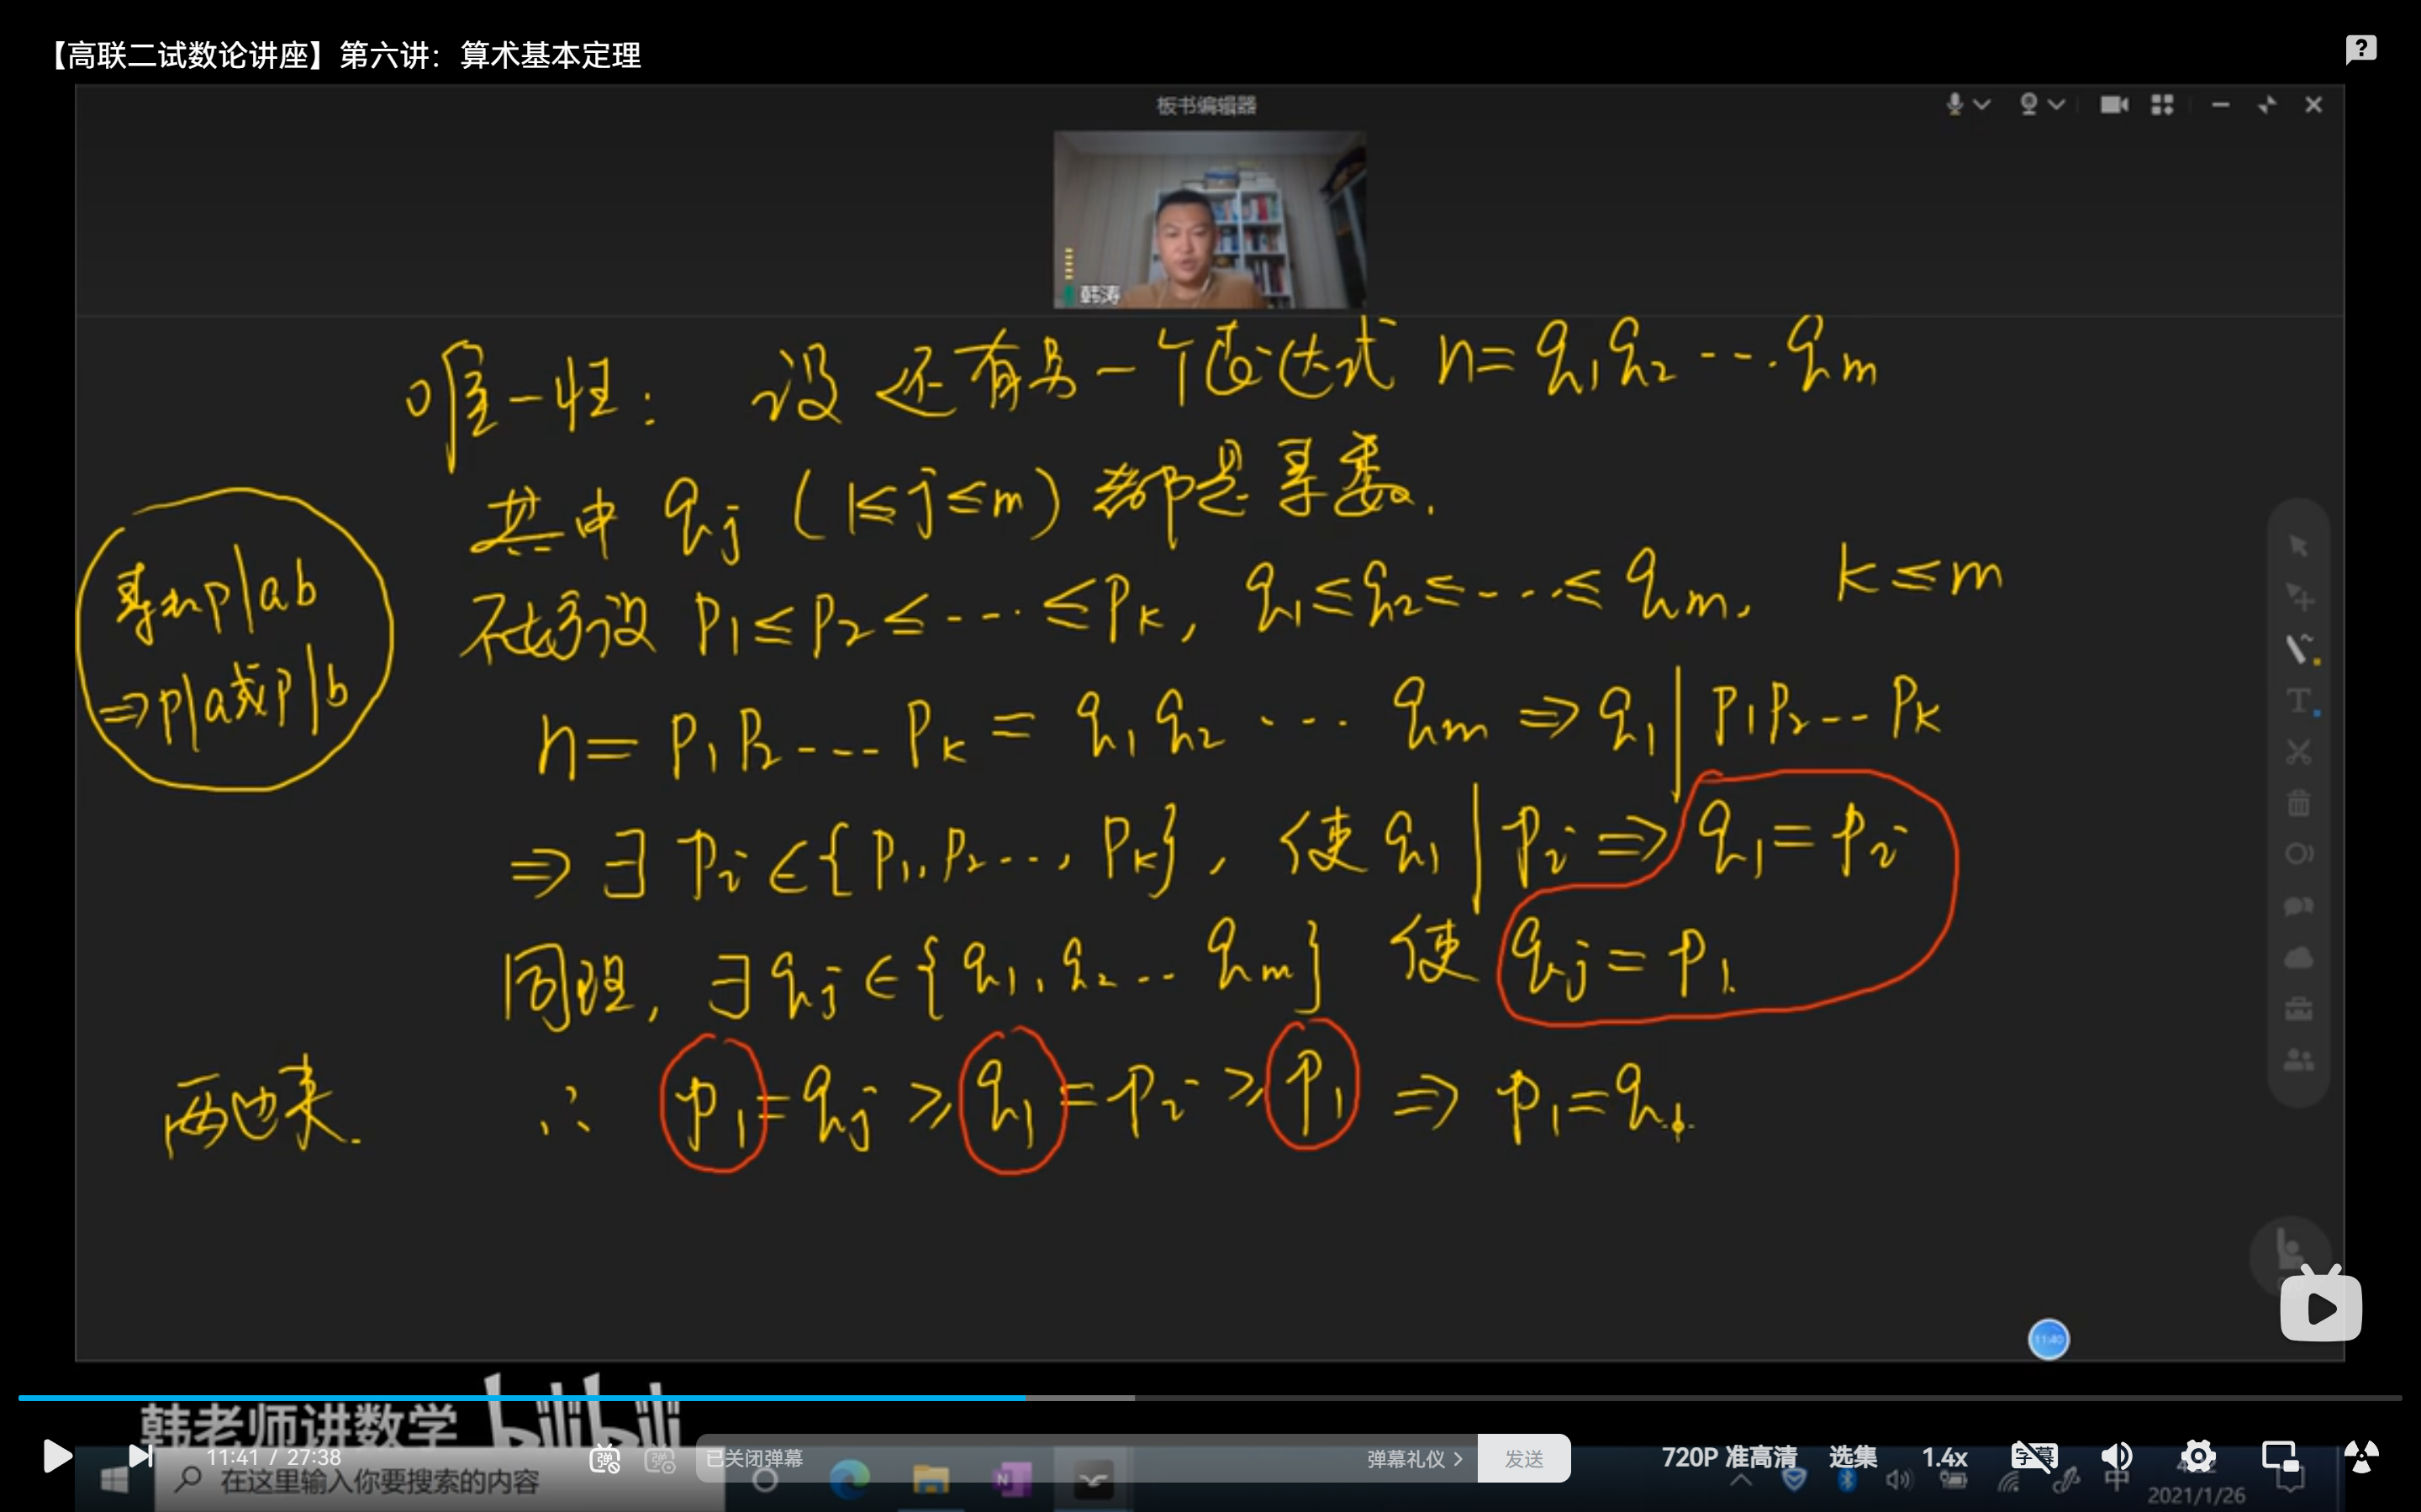 【高联二试数论讲座】第六讲：算术基本定理
板书编辑器
韩涛
唯一性： 设还有另一个表达式 n= q₁q₂ ---- qm
其中 qj (1≤j≤m) 都是素数.
不妨设 P₁≤P₂≤---≤Pk, q₁≤q₂≤---≤qm, k≤m
素数p|ab
⇒p|a或p|b
n= P₁P₂---Pk = q₁q₂ --- qm ⇒ q₁|P₁P₂--Pk
⇒ ∃ Pi∈{P₁,P₂--, Pk}, 使 q₁|Pi ⇒ q₁=Pi
同理, ∃ qj∈{q₁,q₂-- qm} 使 qj=P₁.
两边夹.
∴ P₁=qj ≥ q₁=Pi ≥ P₁ ⇒ P₁=q₁
11:40
韩老师讲数学 bilibili
11:41 / 27:38
已关闭弹幕
弹幕礼仪 >
发送
720P 准高清
选集
1.4x
字幕
在这里输入你要搜索的内容
中
2021/1/26